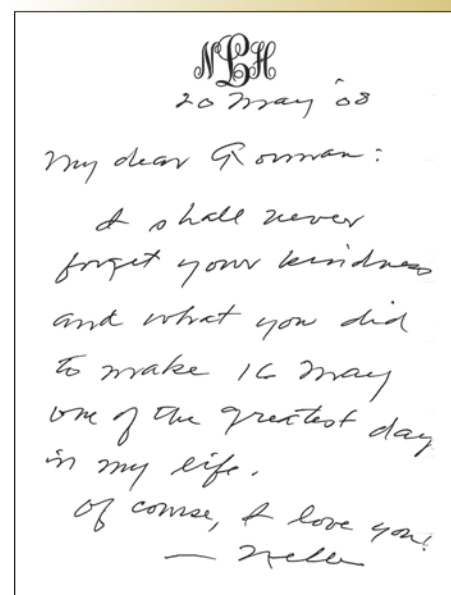 NLH
20 May '08
My dear Gorman:
I shall never
forget your kindness
and what you did
to make 16 May
one of the greatest day
in my life.
Of course, I love you!
— Nelle